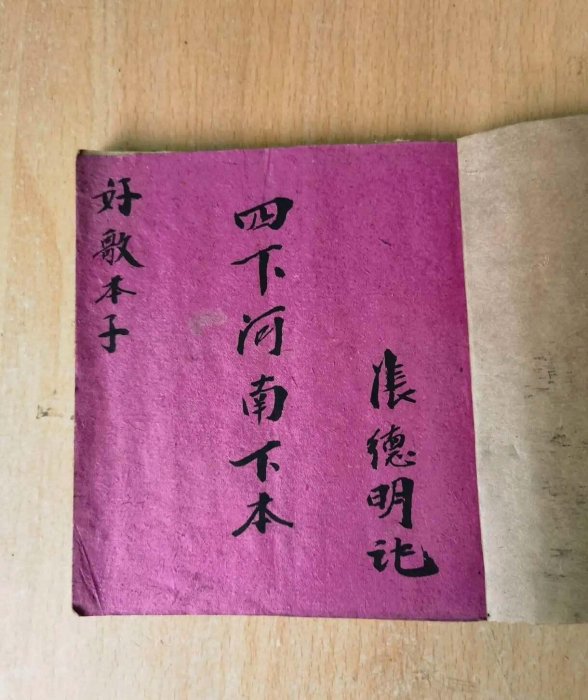 張德明记
四下河南下本
好歌本子